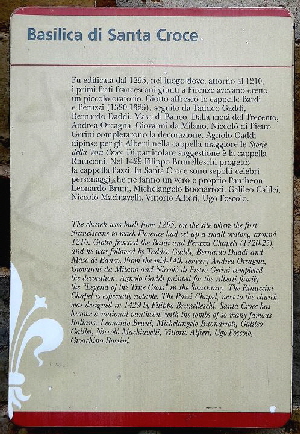 Basilica di Santa Croce
Fu edificata dal 1295, nel luogo dove, attorno al 1210,
i primi frati francescani giunti a Firenze avevano eretto
un piccolo oratorio. Giotto affrescò le cappelle Bardi
e Peruzzi (1320-1325), seguito da Taddeo Gaddi,
Bernardo Daddi, Maso di Banco. Dalla metà del Trecento,
Andrea Orcagna, Giovanni da Milano, Niccolò di Pietro
Gerini completarono la decorazione. Agnolo Gaddi
dipinse per gli Alberti nella cappella maggiore le Storie
della vera Croce. Di particolare suggestione è la cappella
Rinuccini. Nel 1429 Filippo Brunelleschi progettò
la cappella Pazzi. In Santa Croce sono sepolti celebri
personaggi che ne fanno un vero e proprio Pantheon:
Leonardo Bruni, Michelangelo Buonarroti, Galileo Galilei,
Niccolò Machiavelli, Vittorio Alfieri, Ugo Foscolo.
The church was built from 1295, on the site where the first
Franciscans to reach Florence had set up a small oratory, around
1210. Giotto frescoed the Bardi and Peruzzi Chapels (1320-25)
and was followed by Taddeo Gaddi, Bernardo Daddi and
Maso di Banco. From the mid-14th century, Andrea Orcagna,
Giovanni da Milano and Niccolò di Pietro Gerini completed
the decoration. Agnolo Gaddi painted for the Alberti family,
the "Legend of the True Cross" in the
Chapel is especially
was designed in 1429 by Filippo Brunelleschi. Santa Croce has
become a national pantheon with the tombs of so many famous
Italians: Leonardo Bruni, Michelangelo Buonarroti, Galileo
Galilei, Niccolò Machiavelli, Vittorio Alfieri, Ugo Foscolo,
Gioachino Rossini.